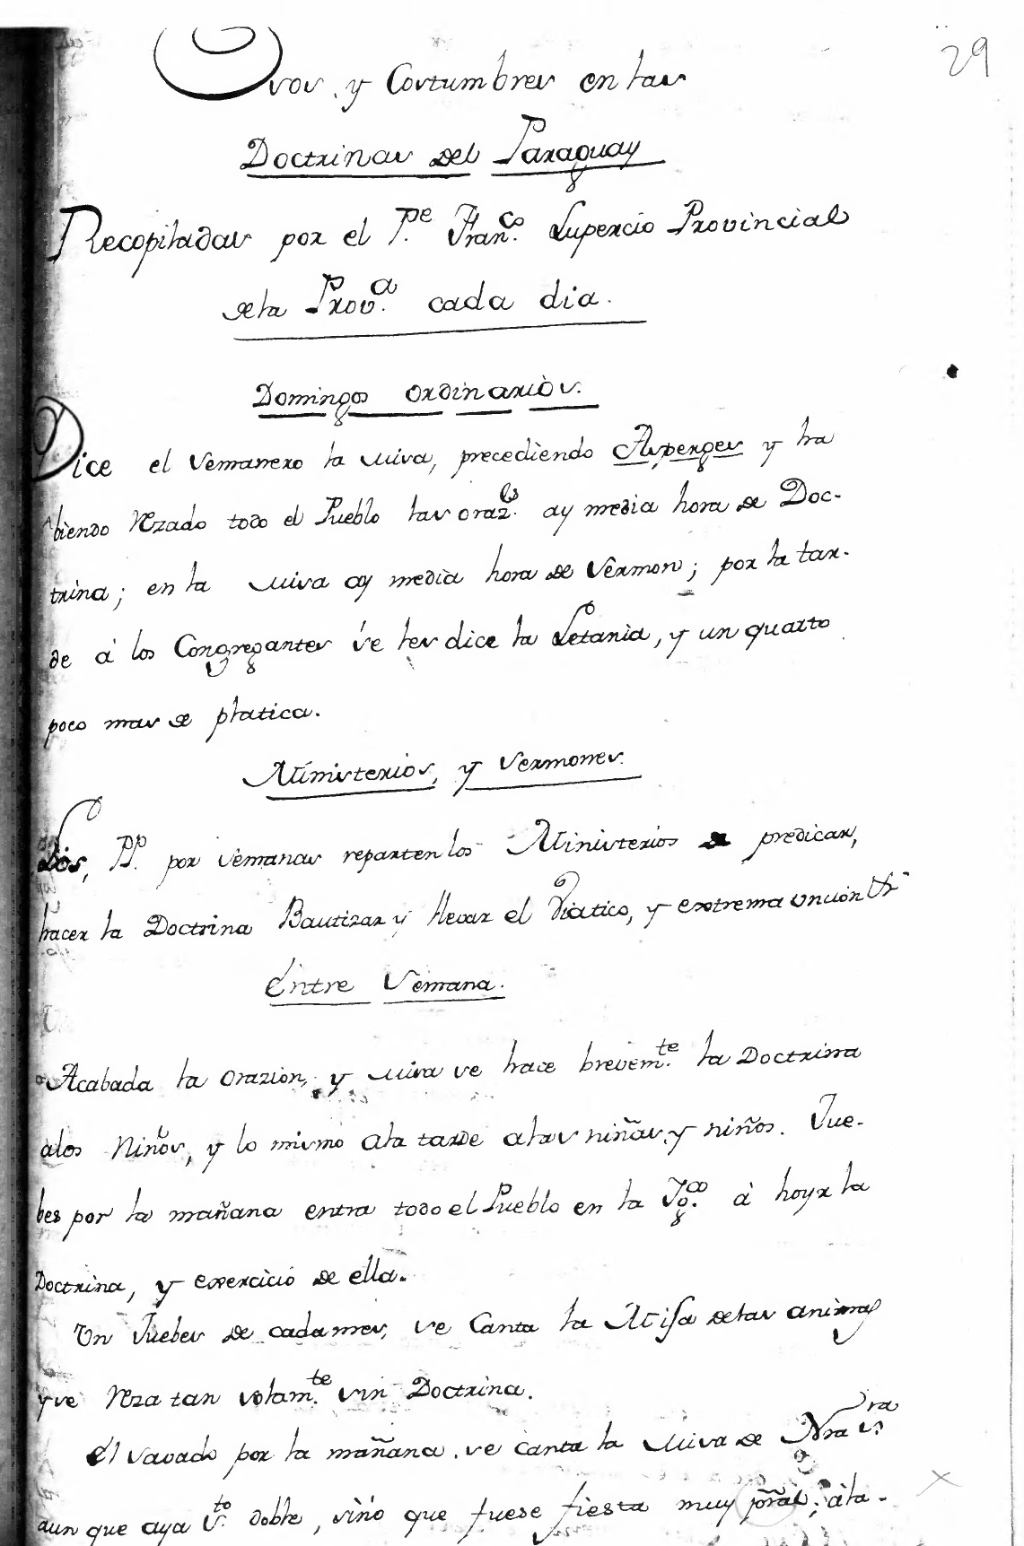 29
Usos, y Costumbres en las
Doctrinas del Paraguay
Recopiladas por el P.e Fran.co Lupercio Provincial
dela Prov.a cada dia.
Domingos ordinarios.
Dice el semanero la misa, precediendo Asperges y ha
biendo rezado todo el Pueblo las oraz.s ay media hora de Doc-
trina; en la misa ay media hora de sermon; por la tar-
de á los Congregantes se les dice la Letania, y un quarto
poco mas de platica.
Ministerios, y sermones.
Dos, PP. por semanas reparten los Ministerios de predicar,
hacer la Doctrina Bautizar y llevar el Viatico, y extrema uncion
Entre Semana.
Acabada la orazion, y misa se hace brevem.te la Doctrina
alos Niños, y lo mismo ala tarde alas niñas, y niños. Jue-
bes por la mañana entra todo el Pueblo en la Yg.a á hoyr la
Doctrina, y exercicio de ella.
Un Jueves de cada mes, se Canta la Missa delas animas
yse reza tan solam.te sin Doctrina.
El savado por la mañana se canta la misa de Nra S.ra
aun que aya S.to doble, sino que fuese fiesta muy pñal; ála-